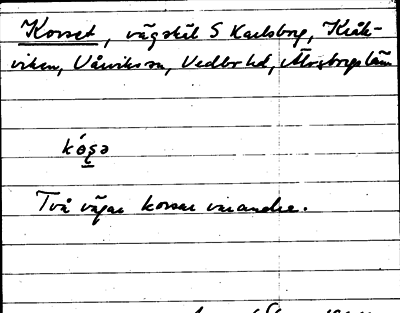 Korset, vägskäl S Karlsborg, Kråk-
viken, Vårviks sn, Vedbo hd, Älvsborgs län
kó̱s̱ə
Två vägar korsar varandra.